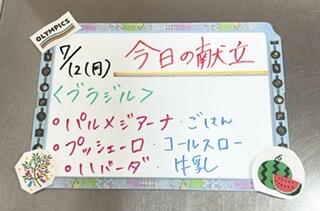 OLYMPICS
7/12(月) 今日の献立
<ブラジル>
○パルメジアーナ・ごはん
○プッシェーロ・コールスロー
○ハバーダ・牛乳